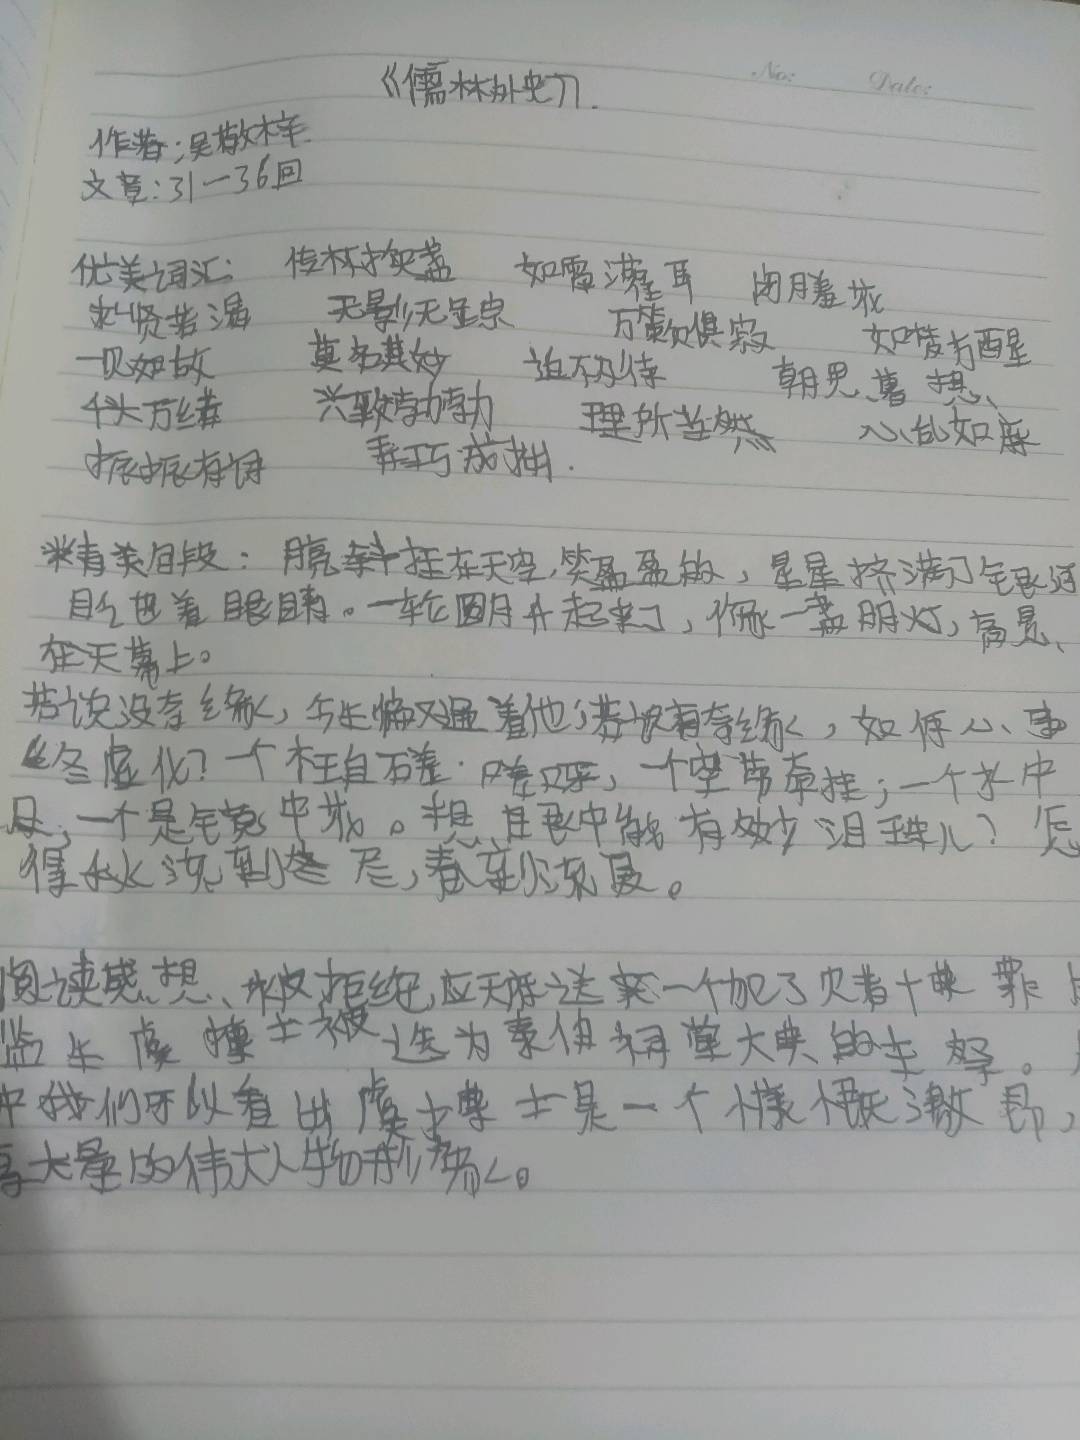 《儒林外史》.
No: Date:
作者:吴敬梓.
文章:31一36回
优美词汇: 传杯换盏 如雷灌耳 闭月羞花
求贤若渴 无影无踪 万籁俱寂 如梦方醒
一见如故 莫名其妙 迫不及待 朝思暮想、
千头万绪 兴致勃勃 理所当然 心乱如麻
振振有词 弄巧成拙.
精美句段: 月亮斜挂在天空,笑盈盈的,星星挤满了银河
眨巴着眼睛。一轮圆月升起来了,像一盏明灯,高悬
在天幕上。
若说没奇缘,今生偏又遇着他;若说有奇缘,如何心事
终虚化?一个枉自嗟呀,一个空劳牵挂;一个水中
月,一个是镜中花。想眼中能有多少泪珠儿?怎
得秋流到冬尽,春流到夏。
阅读感想、被拒绝,应天府送来一个
监生 虞博士被选为泰伯祠堂大典的主祭。
中我们可以看出虞博士是一个慷慨激昂,
大量的伟大人物形象。